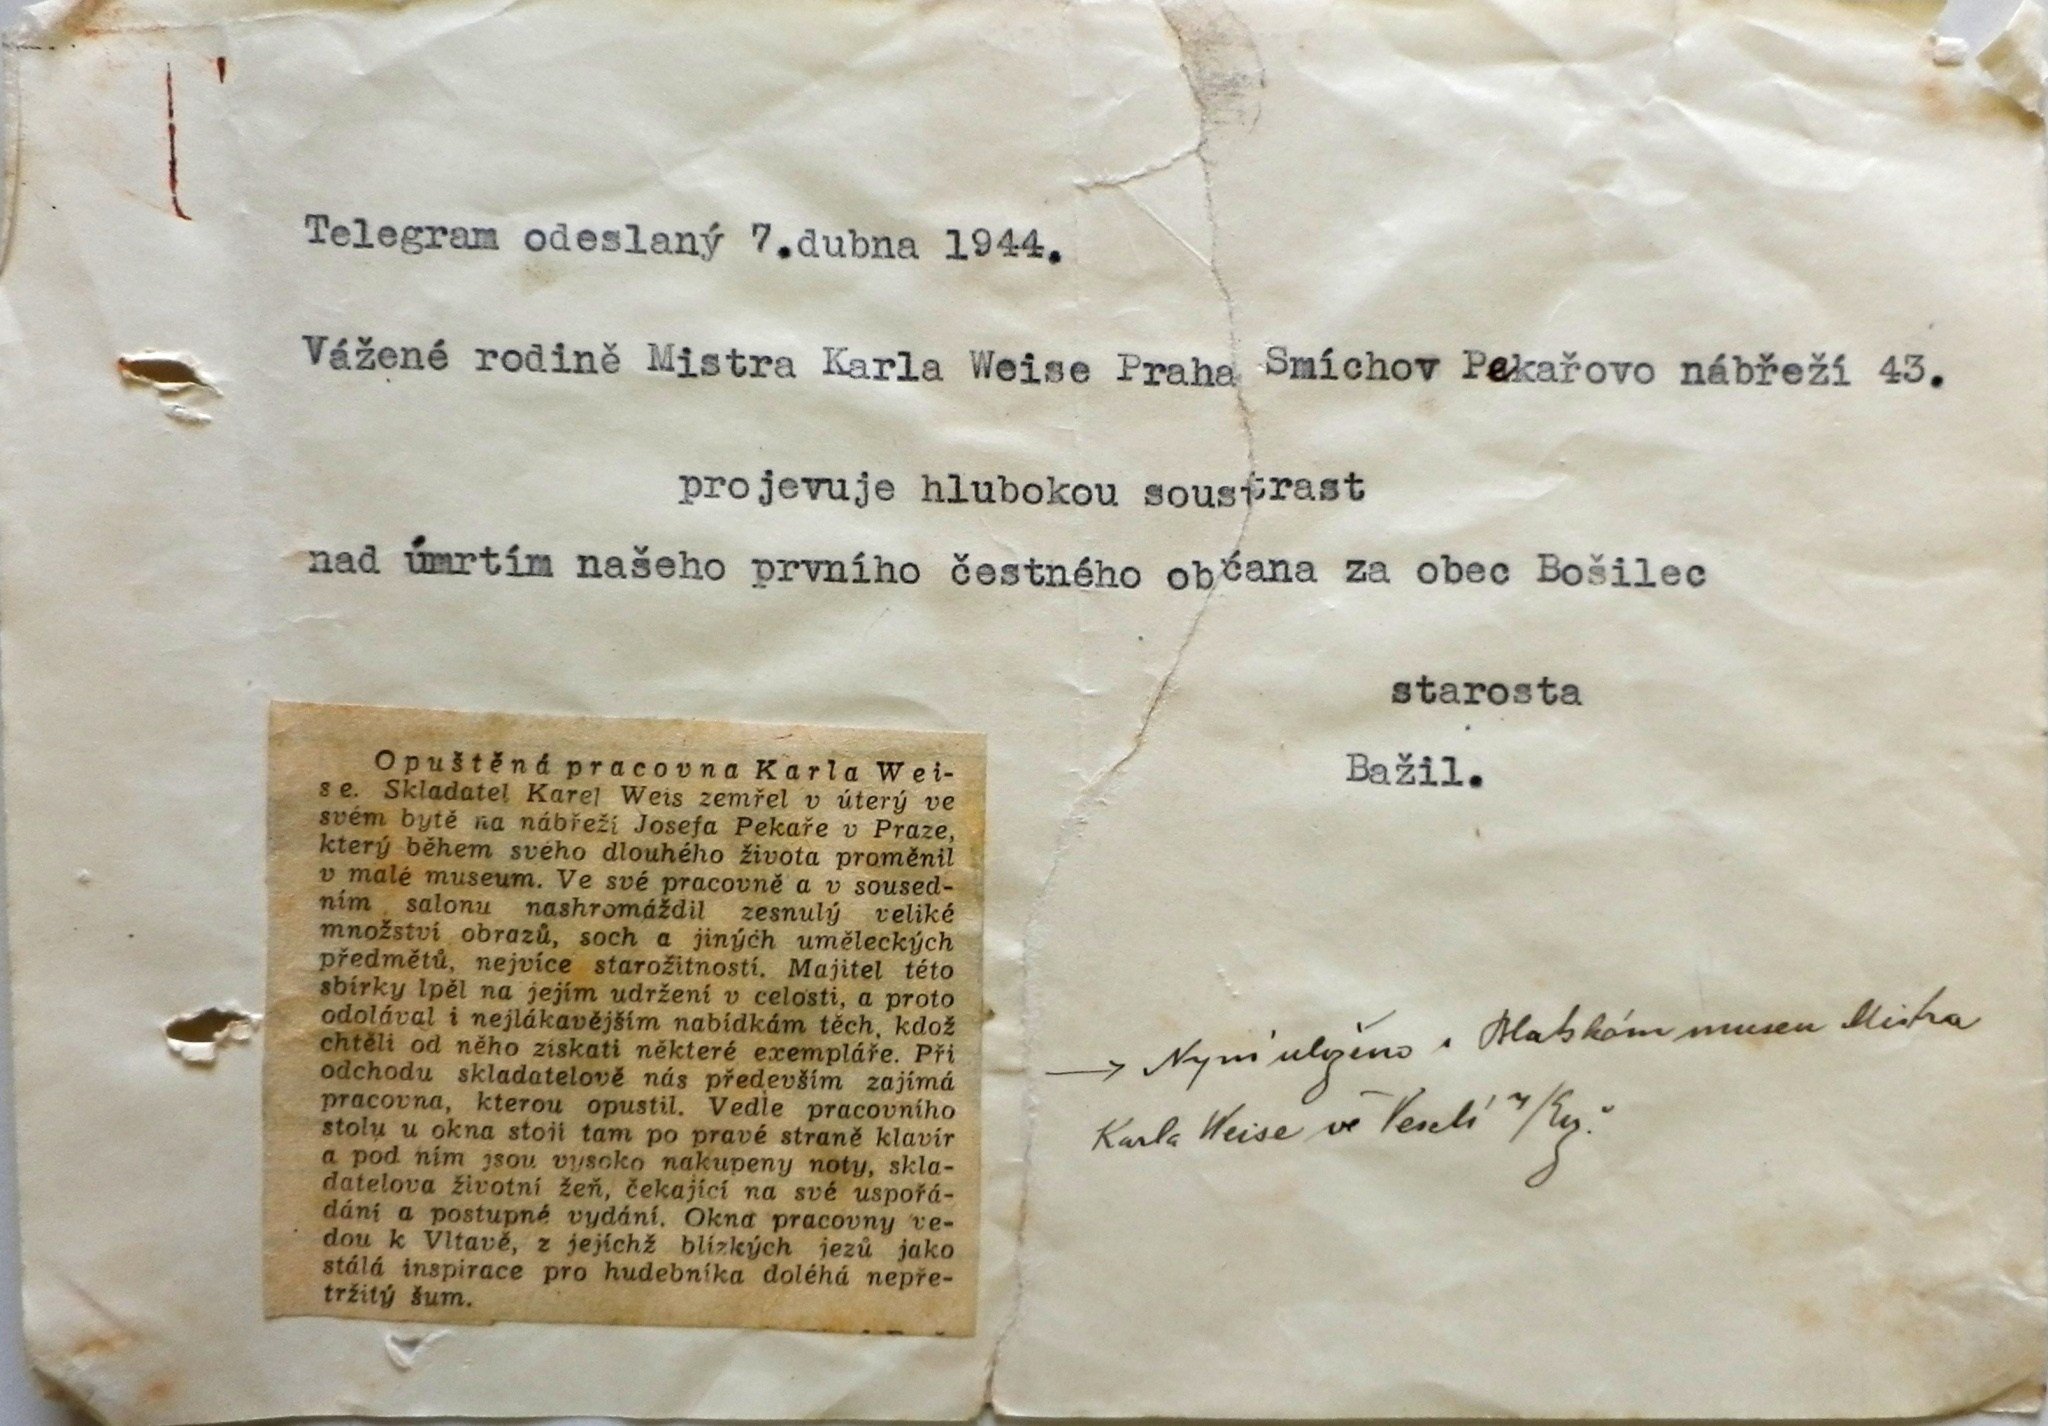 Telegram odeslaný 7.dubna 1944.
Vážené rodině Mistra Karla Weise Praha Smíchov Pekařovo nábřeží 43.
projevuje hlubokou soustrast
nad úmrtím našeho prvního čestného občana za obec Bošilec
starosta
Bažil.
Opuštěná pracovna Karla Wei-
se. Skladatel Karel Weis zemřel v úterý ve
svém bytě na nábřeží Josefa Pekaře v Praze,
který během svého dlouhého života proměnil
v malé museum. Ve své pracovně a v soused-
ním salonu nashromáždil zesnulý veliké
množství obrazů, soch a jiných uměleckých
předmětů, nejvíce starožitností. Majitel této
sbírky lpěl na jejím udržení v celosti, a proto
odolával i nejlákavějším nabídkám těch, kdož
chtěli od něho získati některé exempláře. Při
odchodu skladatelově nás především zajímá
pracovna, kterou opustil. Vedle pracovního
stolu u okna stojí tam po pravé straně klavír
a pod ním jsou vysoko nakupeny noty, skla-
datelova životní žeň, čekající na své uspořá-
dání a postupné vydání. Okna pracovny ve-
dou k Vltavě, z jejíchž blízkých jezů jako
stálá inspirace pro hudebníka doléhá nepře-
tržitý šum.
→ Nyní uloženo v Blatském museu Mistra
Karla Weise ve Veselí n/Luž.